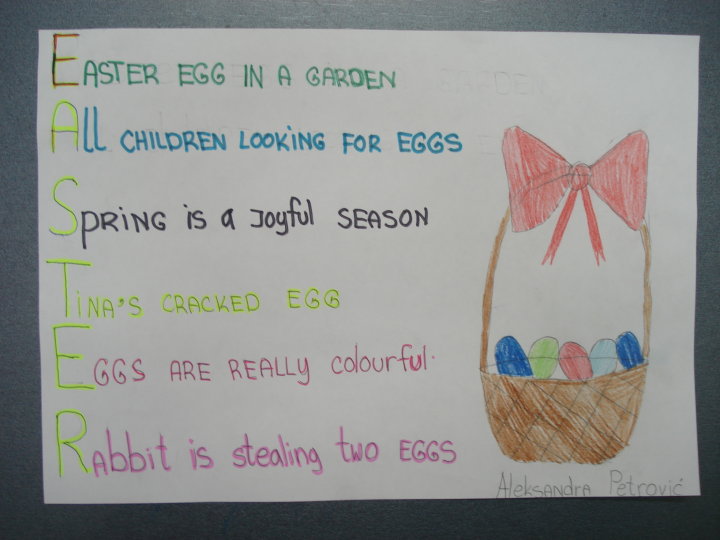 EASTER EGG IN A GARDEN
All CHILDREN LOOKING FOR EGGS
SPRING is a Joyful SEASON
TINA'S CRACKED EGG
EGGS ARE REALLY colourful.
RAbbit is stealing two EGGS
Aleksandra Petrović